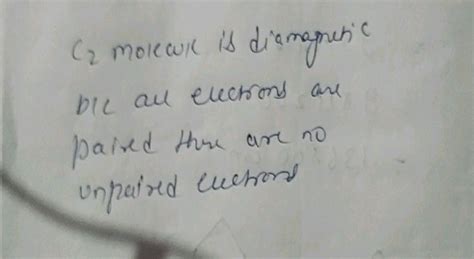 C2 molecule is diamagnetic
b/c all electrons are
paired there are no
unpaired electrons